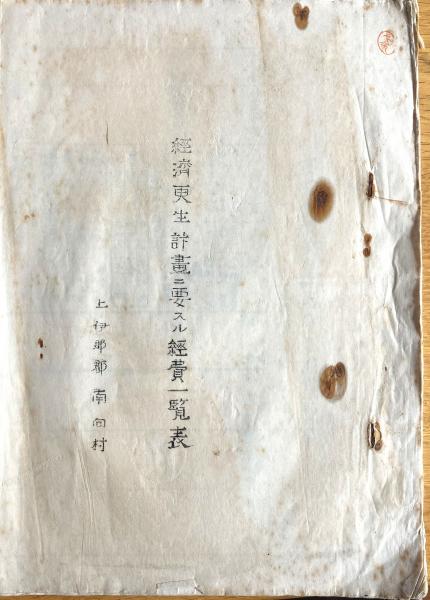 經濟更生計畫ニ要スル經費一覽表
上伊那郡南向村